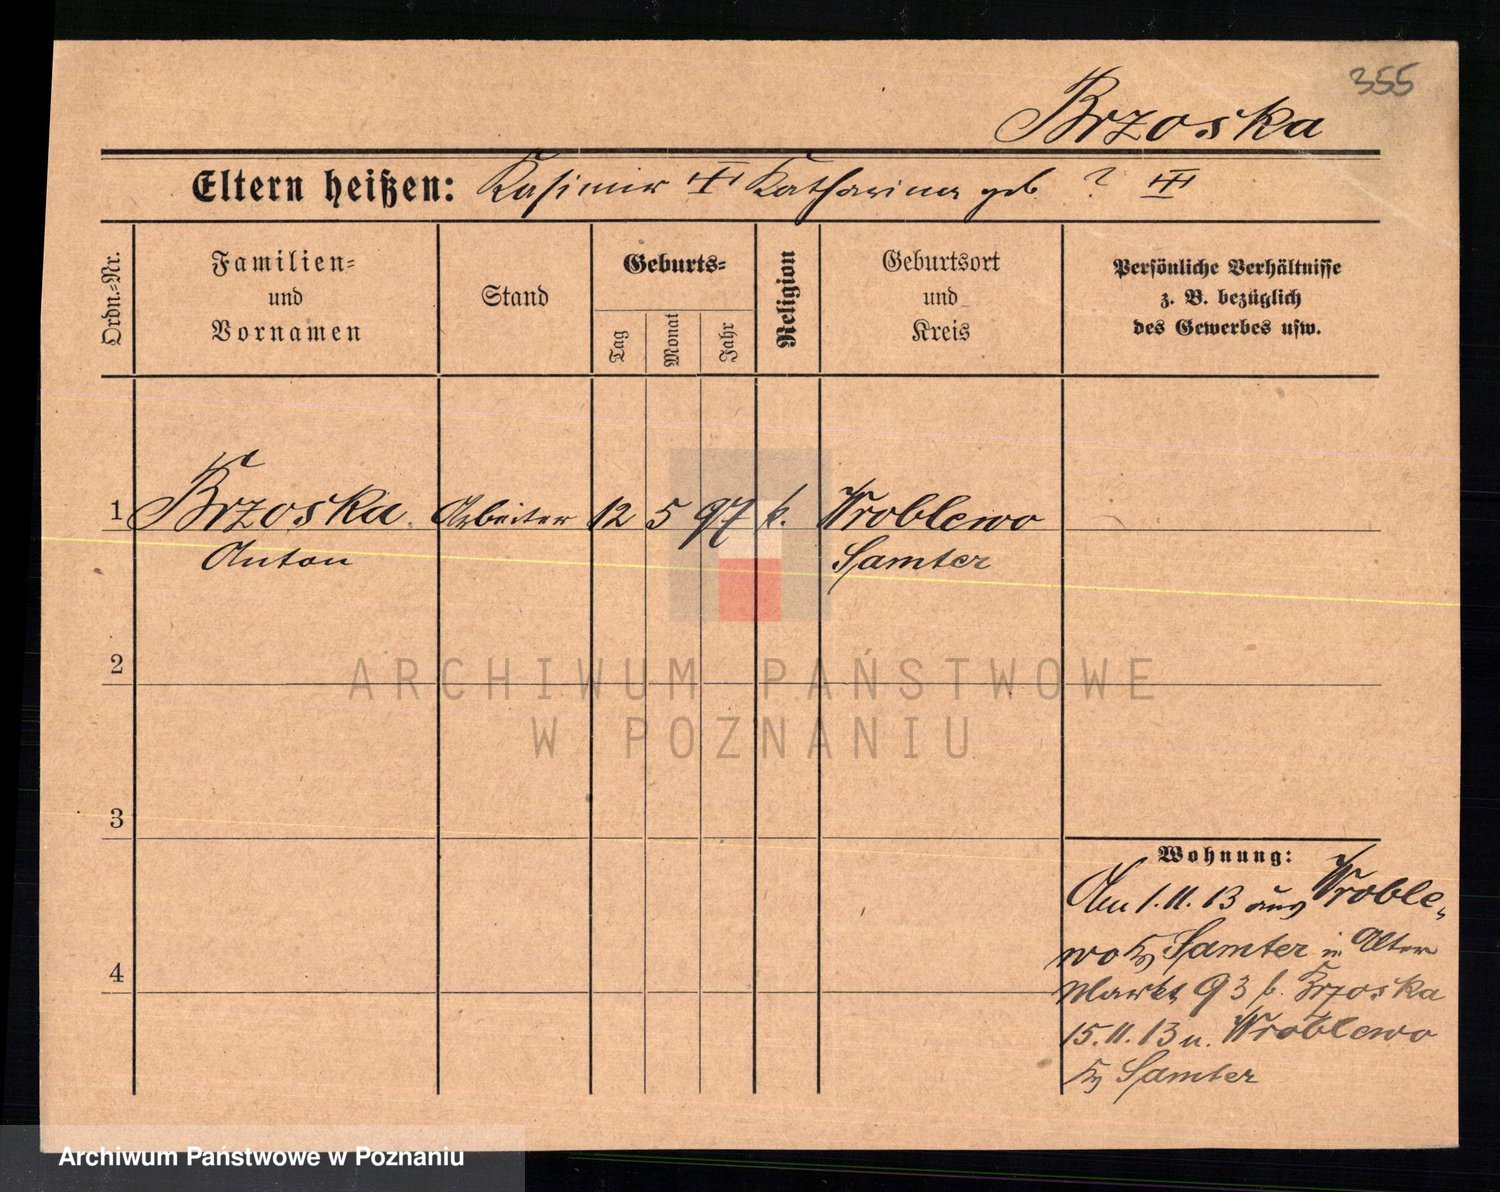 355
Brzoska
Eltern heißen: Kasimir Katharina geb. ?
Ordn.-Nr.
Familien-
und
Vornamen
Stand
Geburts-
Tag
Monat
Jahr
Religion
Geburtsort
und
Kreis
Persönliche Verhältnisse
z. B. bezüglich
des Gewerbes usw.
1 Brzoska Arbeiter 12 5 97 k. Wroblewo
Anton Samter
2
ARCHIWUM PAŃSTWOWE
W POZNANIU
3
4
Wohnung:
Am 1.11.13 aus Wroble-
wo Kr Samter in Alter
Markt 93 b. Brzoska
15.11.13 n. Wroblewo
Kr Samter
Archiwum Państwowe w Poznaniu